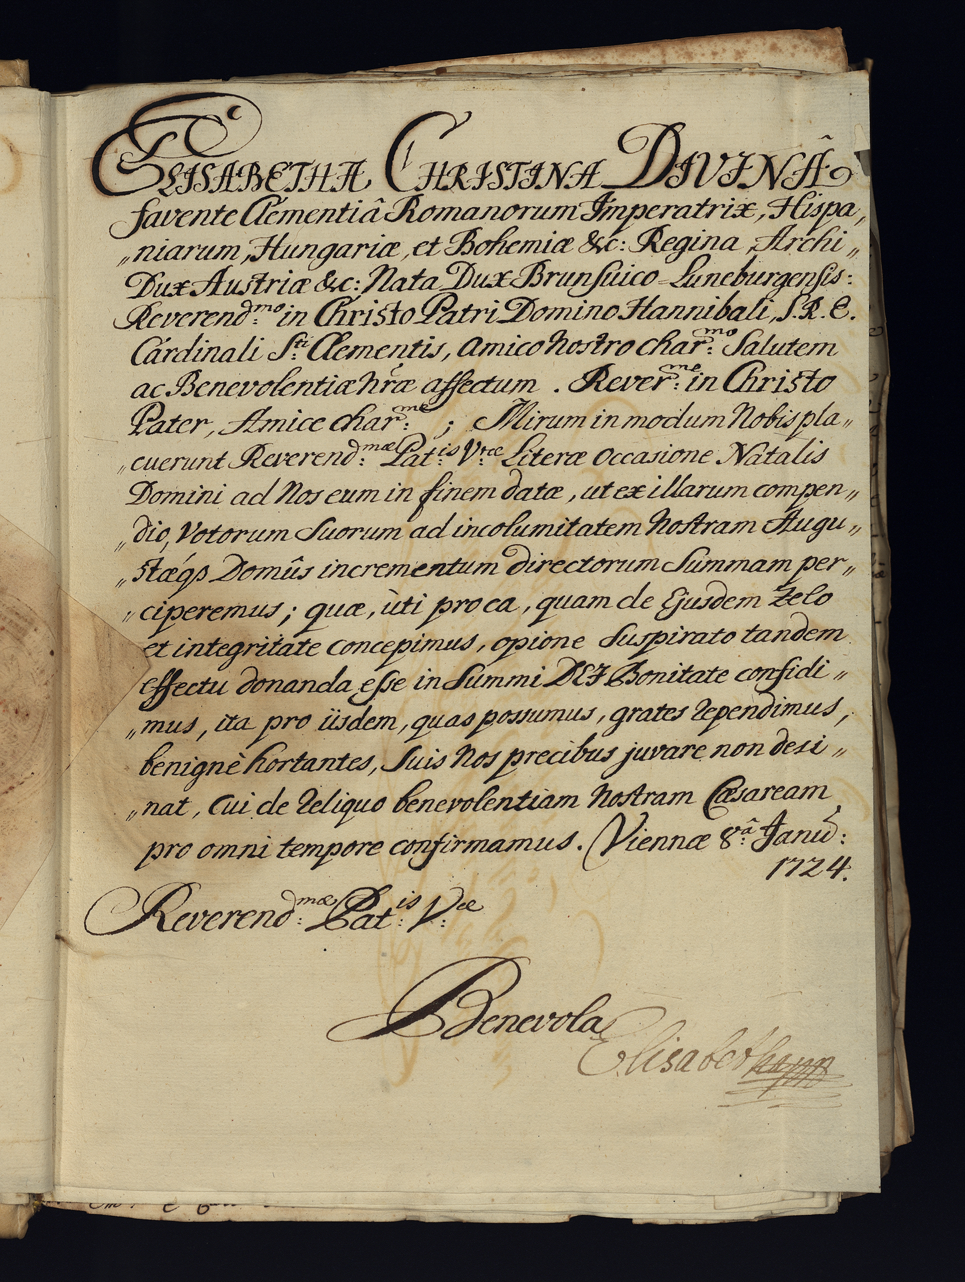 ELISABETHA CHRISTINA DIVINÂ
favente Clementiâ Romanorum Imperatrix, Hispa„
„niarum, Hungariæ, et Bohemiæ &c: Regina, Archi„
Dux Austriæ &c: Nata Dux Brunsuico=Luneburgensis:
Reverendmo: in Christo Patri Domino Hannibali, S.R.E.
Cardinali Sti: Clementis, Amico Nostro charmo: Salutem
ac Benevolentiæ Nræ affectum. Reverme: in Christo
Pater, Amice charme: ; Mirum in modum Nobis pla„
„cuerunt Reverendmæ: Patis: Vræ: Literæ occasione Natalis
Domini ad Nos eum in finem datæ, ut ex illarum compen„
„dio, Votorum Suorum ad incolumitatem Nostram Augu„
„stæq́3 Domûs incrementum directorum Summam per„
„ciperemus; quæ, ùti pro ea, quam de Ejusdem Zelo
et integritate concepimus, opione Suspirato tandem
effectu donanda esse in Summi DEI Bonitate confidi„
„mus, ita pro iisdem, quas possumus, grates rependimus,
benignè hortantes, Suis Nos precibus juvare non desi„
„nat, Cui de reliquo benevolentiam Nostram Cæsaream
pro omni tempore confirmamus. Viennæ 8â: Janu:
1724.
Reverendmæ: Patis: Væ:
Benevola
Elisabeth